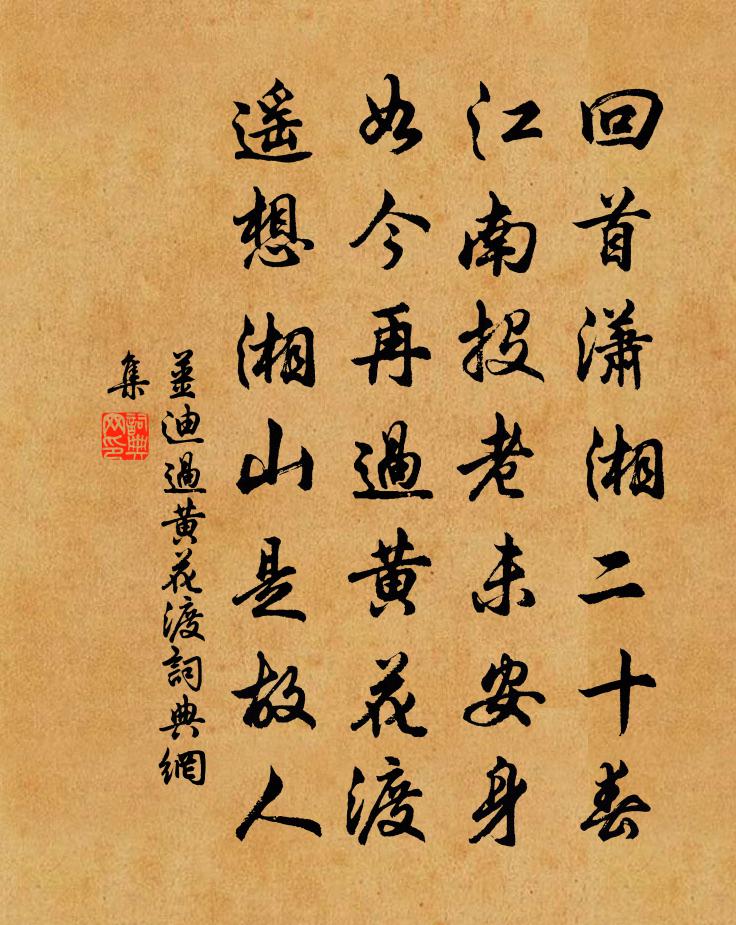 回首瀟湘二十春
江南投老未安身
如今再過黄花渡
遥想湘山是故人
薑迪過黄花渡詞典網
集
詞典
网印